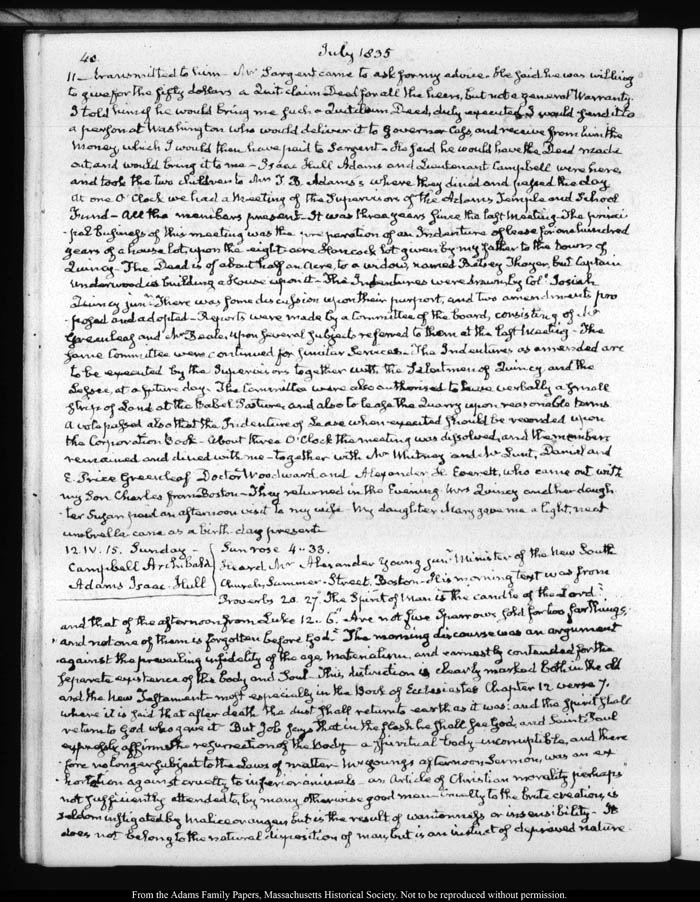 40
July 1835
11 — transmitted to him — Mr Sargent came to ask for my advice. He said he was willing
to give for the fifty dollars a Quit claim Deed for all the heirs, but not a general Warranty.
I told him if he would bring me such a Quitclaim Deed, duly executed, I would send it to
a person at Washington who would deliver it to Governor Cass, and receive from him the
Money, which I would then have paid to Sargent — He said he would have the Deed made
out and would bring it to me — Isaac Hull Adams and Lieutenant Campbell were here,
and took the two children to Mrs T. B. Adams's where they dined and passed the day.
At one O'Clock we had a Meeting of the Supervisors of the Adams Temple and School
Fund — All the members present — It was three years since the last Meeting — The princi-
-pal business of this meeting was the preparation of an Indenture of lease for one hundred
years of a house lot, upon the eight acre Hancock lot given by my father to the town of
Quincy — The Deed is of about half an Acre, to a widow, named Betsey Thayer, but Captain
Underwood is building a House upon it — The Indentures were drawn by Col. Josiah
Quincy junr. There was some discussion upon their purport, and two amendments pro
-posed and adopted — Reports were made by a Committee of the board, consisting of Mr
Greenleaf and Mr Beale, upon several subjects referred to them at the last Meeting — The
same Committee were continued for similar services — The Indentures as amended are
to be executed by the Supervisors together with the Selectmen of Quincy, and the
Lessee, at a future day — The Committee were also authorised to lease verbally a small
strip of Land at the Babel Pasture, and also to lease the Quarry upon reasonable terms
A vote passed also that the Indenture of Lease when executed should be recorded upon
the Corporation book — About three O'Clock the meeting was dissolved, and the members
remained and dined with me — together with Mr Whitney and Mr Lunt, Daniel and
E. Price Greenleaf Doctor Woodward and Alexander H. Everett, who came out with
my Son Charles from Boston — They returned in the Evening. Mrs Quincy and her daugh
-ter Susan paid an afternoon visit to my wife. My daughter Mary gave me a light, neat
umbrella cane as a birth-day present
12. IV. 15. Sunday — Sun rose 4–33.
Campbell Archibald Heard Mr Alexander Young junr. Minister of the New South
Adams Isaac. Hull Church, Summer-Street, Boston. His morning text was from
Proverbs 20. 27. "The Spirit of Man is the candle of the Lord";
and that of the afternoon from Luke 12. 6. "Are not five Sparrows sold for two farthings,
"and not one of them is forgotten before God" The morning discourse was an argument
against the prevailing infidelity of the age, Materialism, and earnestly contended for the
separate existence of the body and Soul — This distinction is clearly marked both in the old
and the New Testament — most especially in the Book of Ecclesiastes Chapter 12. verse 7.
where it is said that after death the dust shall return to earth as it was: and the Spirit shall
return to God who gave it But Job says that in the flesh he shall see God, and Saint Paul
expressly affirms the resurrection of the Body — a spiritual body incorruptible, and there
-fore no longer subject to the Laws of matter — Mr Young's afternoon, Sermon, was an ex
-hortation against cruelty to inferior animals — an Article of Christian morality perhaps
not sufficiently attended to, by many otherwise good men — Cruelty to the brute creation, is
seldom instigated by Malice or anger, but is the result of wantonness or insensibility — It
does not belong to the natural disposition of man, but is an instinct of depraved nature
From the Adams Family Papers, Massachusetts Historical Society. Not to be reproduced without permission.